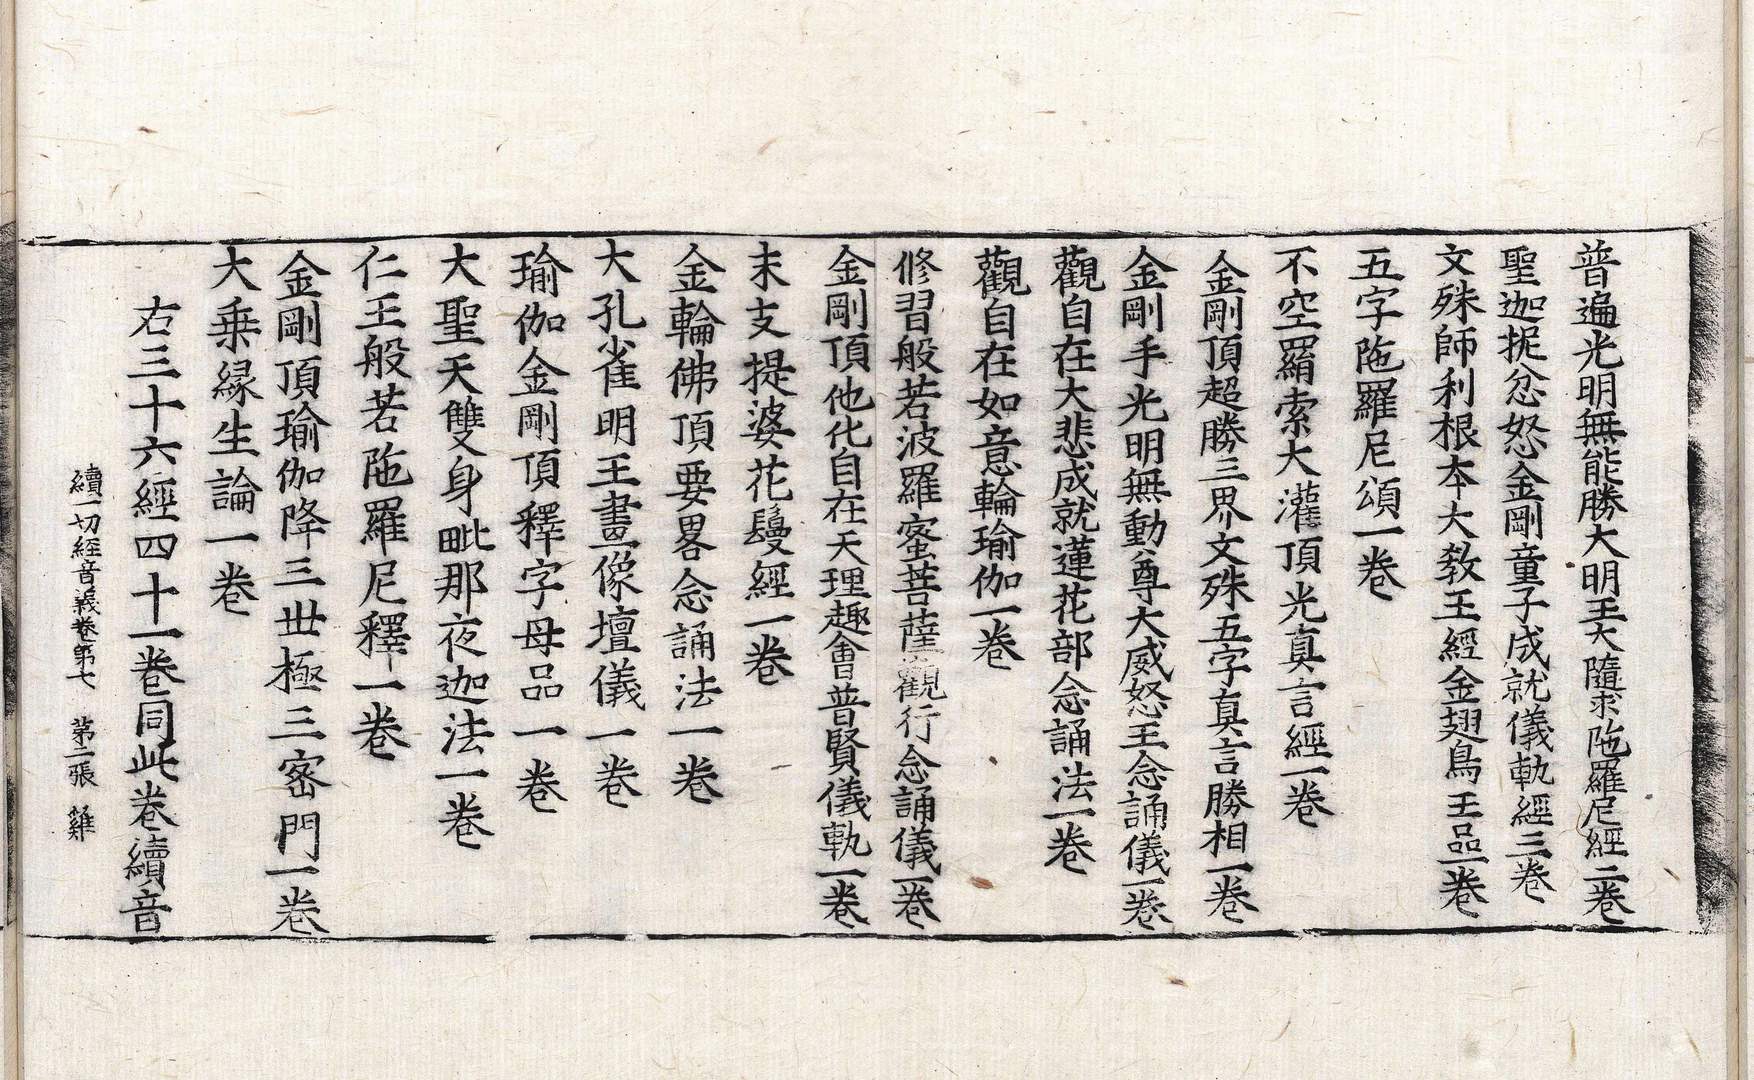 普遍光明無能勝大明王大隨求陁羅尼經二卷
聖迦抳忿怒金剛童子成就儀軌經三卷
文殊師利根本大教王經金翅鳥王品一卷
五字陁羅尼頌一卷
不空羂索大灌頂光真言經一卷
金剛頂超勝三界文殊五字真言勝相一卷
金剛手光明無動尊大威怒王念誦儀一卷
觀自在大悲成就蓮花部念誦法一卷
觀自在如意輪瑜伽一卷
修習般若波羅蜜菩薩觀行念誦儀一卷
金剛頂他化自在天理趣會普賢儀軌一卷
末支提婆花鬘經一卷
金輪佛頂要畧念誦法一卷
大孔雀明王畫像壇儀一卷
瑜伽金剛頂釋字母品一卷
大聖天雙身毗那夜迦法一卷
仁王般若陁羅尼釋一卷
金剛頂瑜伽降三世極三密門一卷
大乗緣生論一卷
右三十六經四十一卷同此卷續音
續一切經音義卷第七　第二張　雞